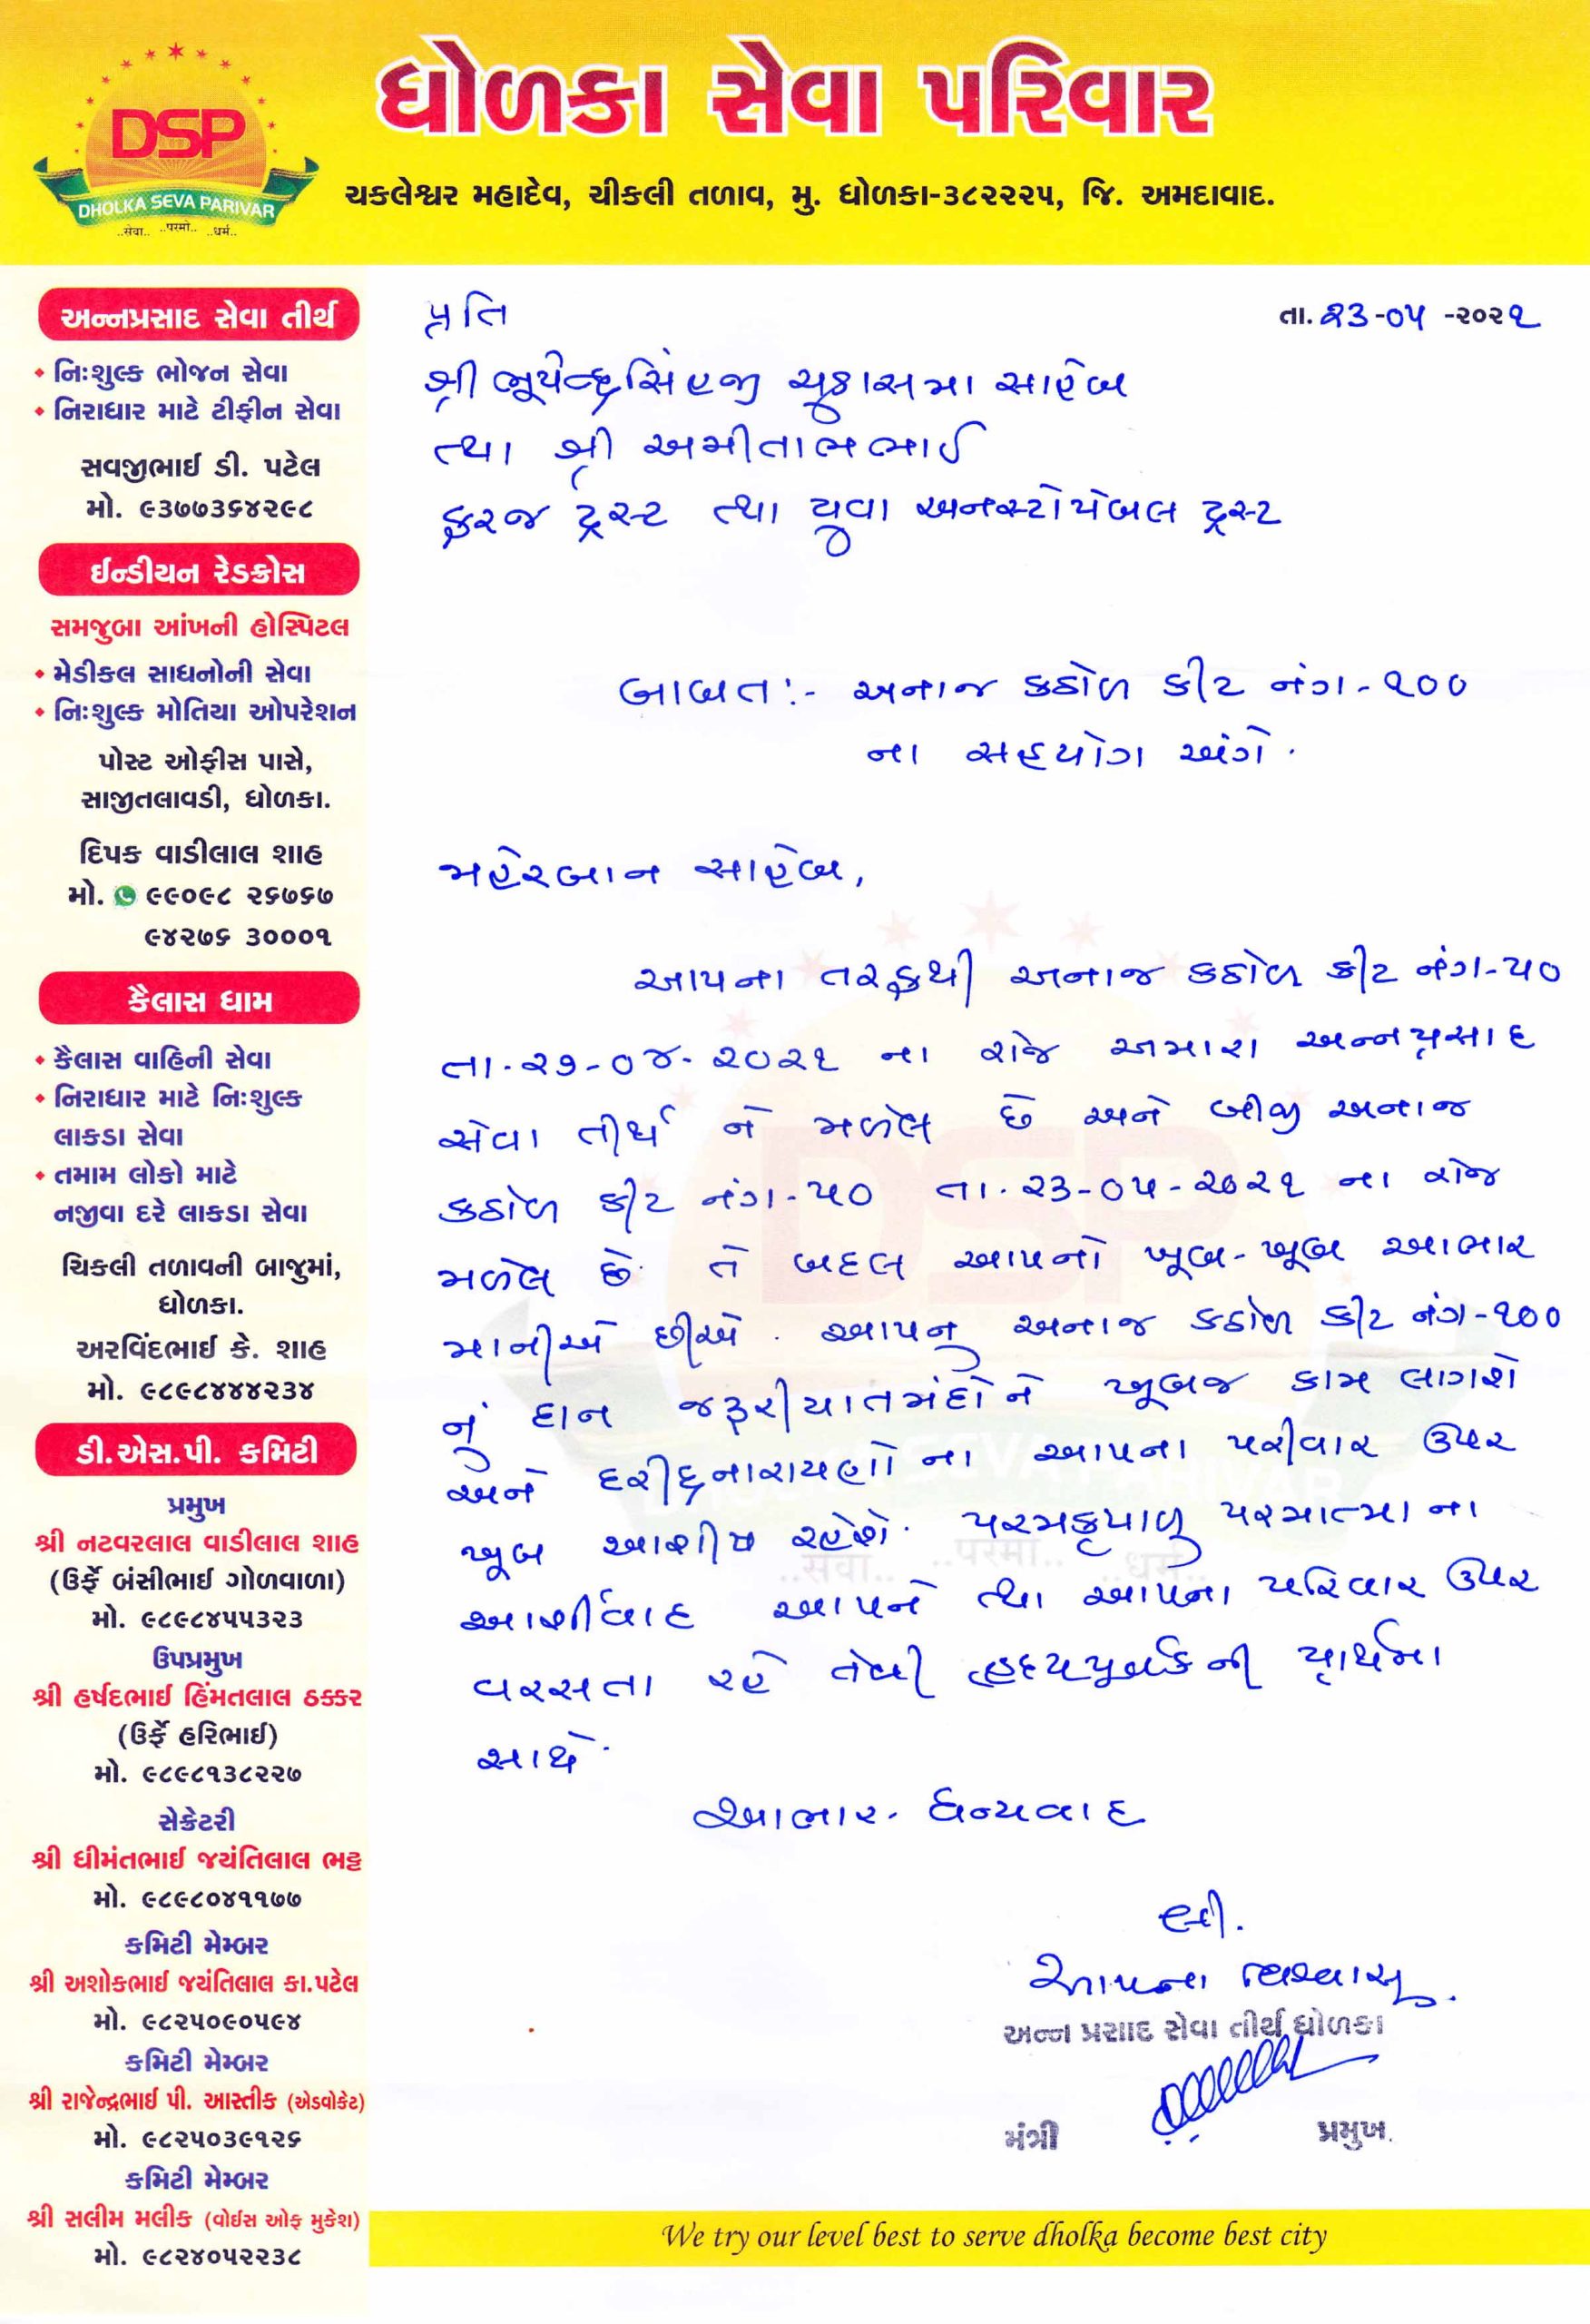 DSP
DHOLKA SEVA PARIVAR
..સેવા.. ..પરમો.. ..ધર્મ..
ધોળકા સેવા પરિવાર
ચકલેશ્વર મહાદેવ, ચીકલી તળાવ, મુ. ધોળકા-૩૮૨૨૨૫, જિ. અમદાવાદ.
અન્નપ્રસાદ સેવા તીર્થ
• નિઃશુલ્ક ભોજન સેવા
• નિરાધાર માટે ટીફીન સેવા
સવજીભાઈ ડી. પટેલ
મો. ૯૩૭૭૩૬૪૨૯૮
ઈન્ડીયન રેડક્રોસ
સમજુબા આંખની હોસ્પિટલ
• મેડીકલ સાધનોની સેવા
• નિઃશુલ્ક મોતિયા ઓપરેશન
પોસ્ટ ઓફીસ પાસે,
સાજીતલાવડી, ધોળકા.
દિપક વાડીલાલ શાહ
મો. ૯૯૦૯૮ ૨૬૭૬૭
૯૪૨૭૬ ૩૦૦૦૧
કૈલાસ ધામ
• કૈલાસ વાહિની સેવા
• નિરાધાર માટે નિઃશુલ્ક
લાકડા સેવા
• તમામ લોકો માટે
નજીવા દરે લાકડા સેવા
ચિકલી તળાવની બાજુમાં,
ધોળકા.
અરવિંદભાઈ કે. શાહ
મો. ૯૮૯૮૪૪૪૨૩૪
ડી.એસ.પી. કમિટી
પ્રમુખ
શ્રી નટવરલાલ વાડીલાલ શાહ
(ઉર્ફે બંસીભાઈ ગોળવાળા)
મો. ૯૮૯૮૪૫૫૩૨૩
ઉપપ્રમુખ
શ્રી હર્ષદભાઈ હિંમતલાલ ઠક્કર
(ઉર્ફે હરિભાઈ)
મો. ૯૮૯૮૧૩૮૨૨૭
સેક્રેટરી
શ્રી ધીમંતભાઈ જયંતિલાલ ભટ્ટ
મો. ૯૮૯૮૦૪૧૧૭૭
કમિટી મેમ્બર
શ્રી અશોકભાઈ જયંતિલાલ કા.પટેલ
મો. ૯૮૨૫૦૯૦૫૯૪
કમિટી મેમ્બર
શ્રી રાજેન્દ્રભાઈ પી. આસ્તીક (એડવોકેટ)
મો. ૯૮૨૫૦૩૯૧૨૬
કમિટી મેમ્બર
શ્રી સલીમ મલીક (વોઈસ ઓફ મુકેશ)
મો. ૯૮૨૪૦૫૨૨૩૮
પ્રતિ
તા. ૨૩-૦૫-૨૦૨૧
શ્રી ભૂપેન્દ્રસિંહજી ચુડાસમા સાહેબ
તથા શ્રી અમીતાભભાઈ
ફરજ ટ્રસ્ટ તથા યુવા અનસ્ટોપેબલ ટ્રસ્ટ
બાબત:- અનાજ કઠોળ કીટ નંગ-૧૦૦
ના સહયોગ અંગે.
મહેરબાન સાહેબ,
આપના તરફથી અનાજ કઠોળ કીટ નંગ-૫૦
તા.૨૭-૦૪-૨૦૨૧ ના રોજ અમારા અન્નપ્રસાદ
સેવા તીર્થ ને મળેલ છે અને બીજી અનાજ
કઠોળ કીટ નંગ-૫૦ તા. ૨૩-૦૫-૨૦૨૧ ના રોજ
મળેલ છે. તે બદલ આપનો ખૂબ-ખૂબ આભાર
માનીએ છીએ. આપનુ અનાજ કઠોળ કીટ નંગ-૧૦૦
નું દાન જરૂરીયાતમંદોને ખૂબજ કામ લાગશે
અને દરીદ્રનારાયણો ના આપના પરીવાર ઉપર
ખૂબ આશીષ રહેશે. પરમકૃપાળુ પરમાત્મા ના
આર્શીવાદ આપને તથા આપના પરિવાર ઉપર
વરસતા રહે તેવી હ્રદયપુર્વક ની પ્રાર્થના
સાથે.
આભાર. ધન્યવાદ
લી.
આપના વિશ્વાસુ.
અન્ન પ્રસાદ સેવા તીર્થ ધોળકા
મંત્રી પ્રમુખ.
DSP
DHOLKA SEVA PARIVAR
..સેવા.. ..પરમો.. ..ધર્મ..
We try our level best to serve dholka become best city